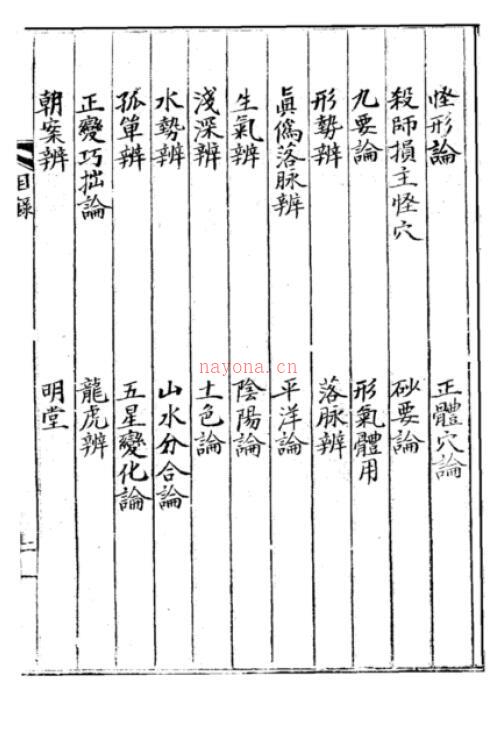 怪形論
正體穴論
殺師損主怪穴
砂要論
九要論
形氣體用
形勢辨
落脉辨
眞僞落脉辨
平洋論
生氣辨
陰陽論
淺深辨
土色論
水勢辨
山水分合論
孤單辨
五星變化論
正變巧拙論
龍虎辨
朝案辨
明堂
目錄
nayona.cn